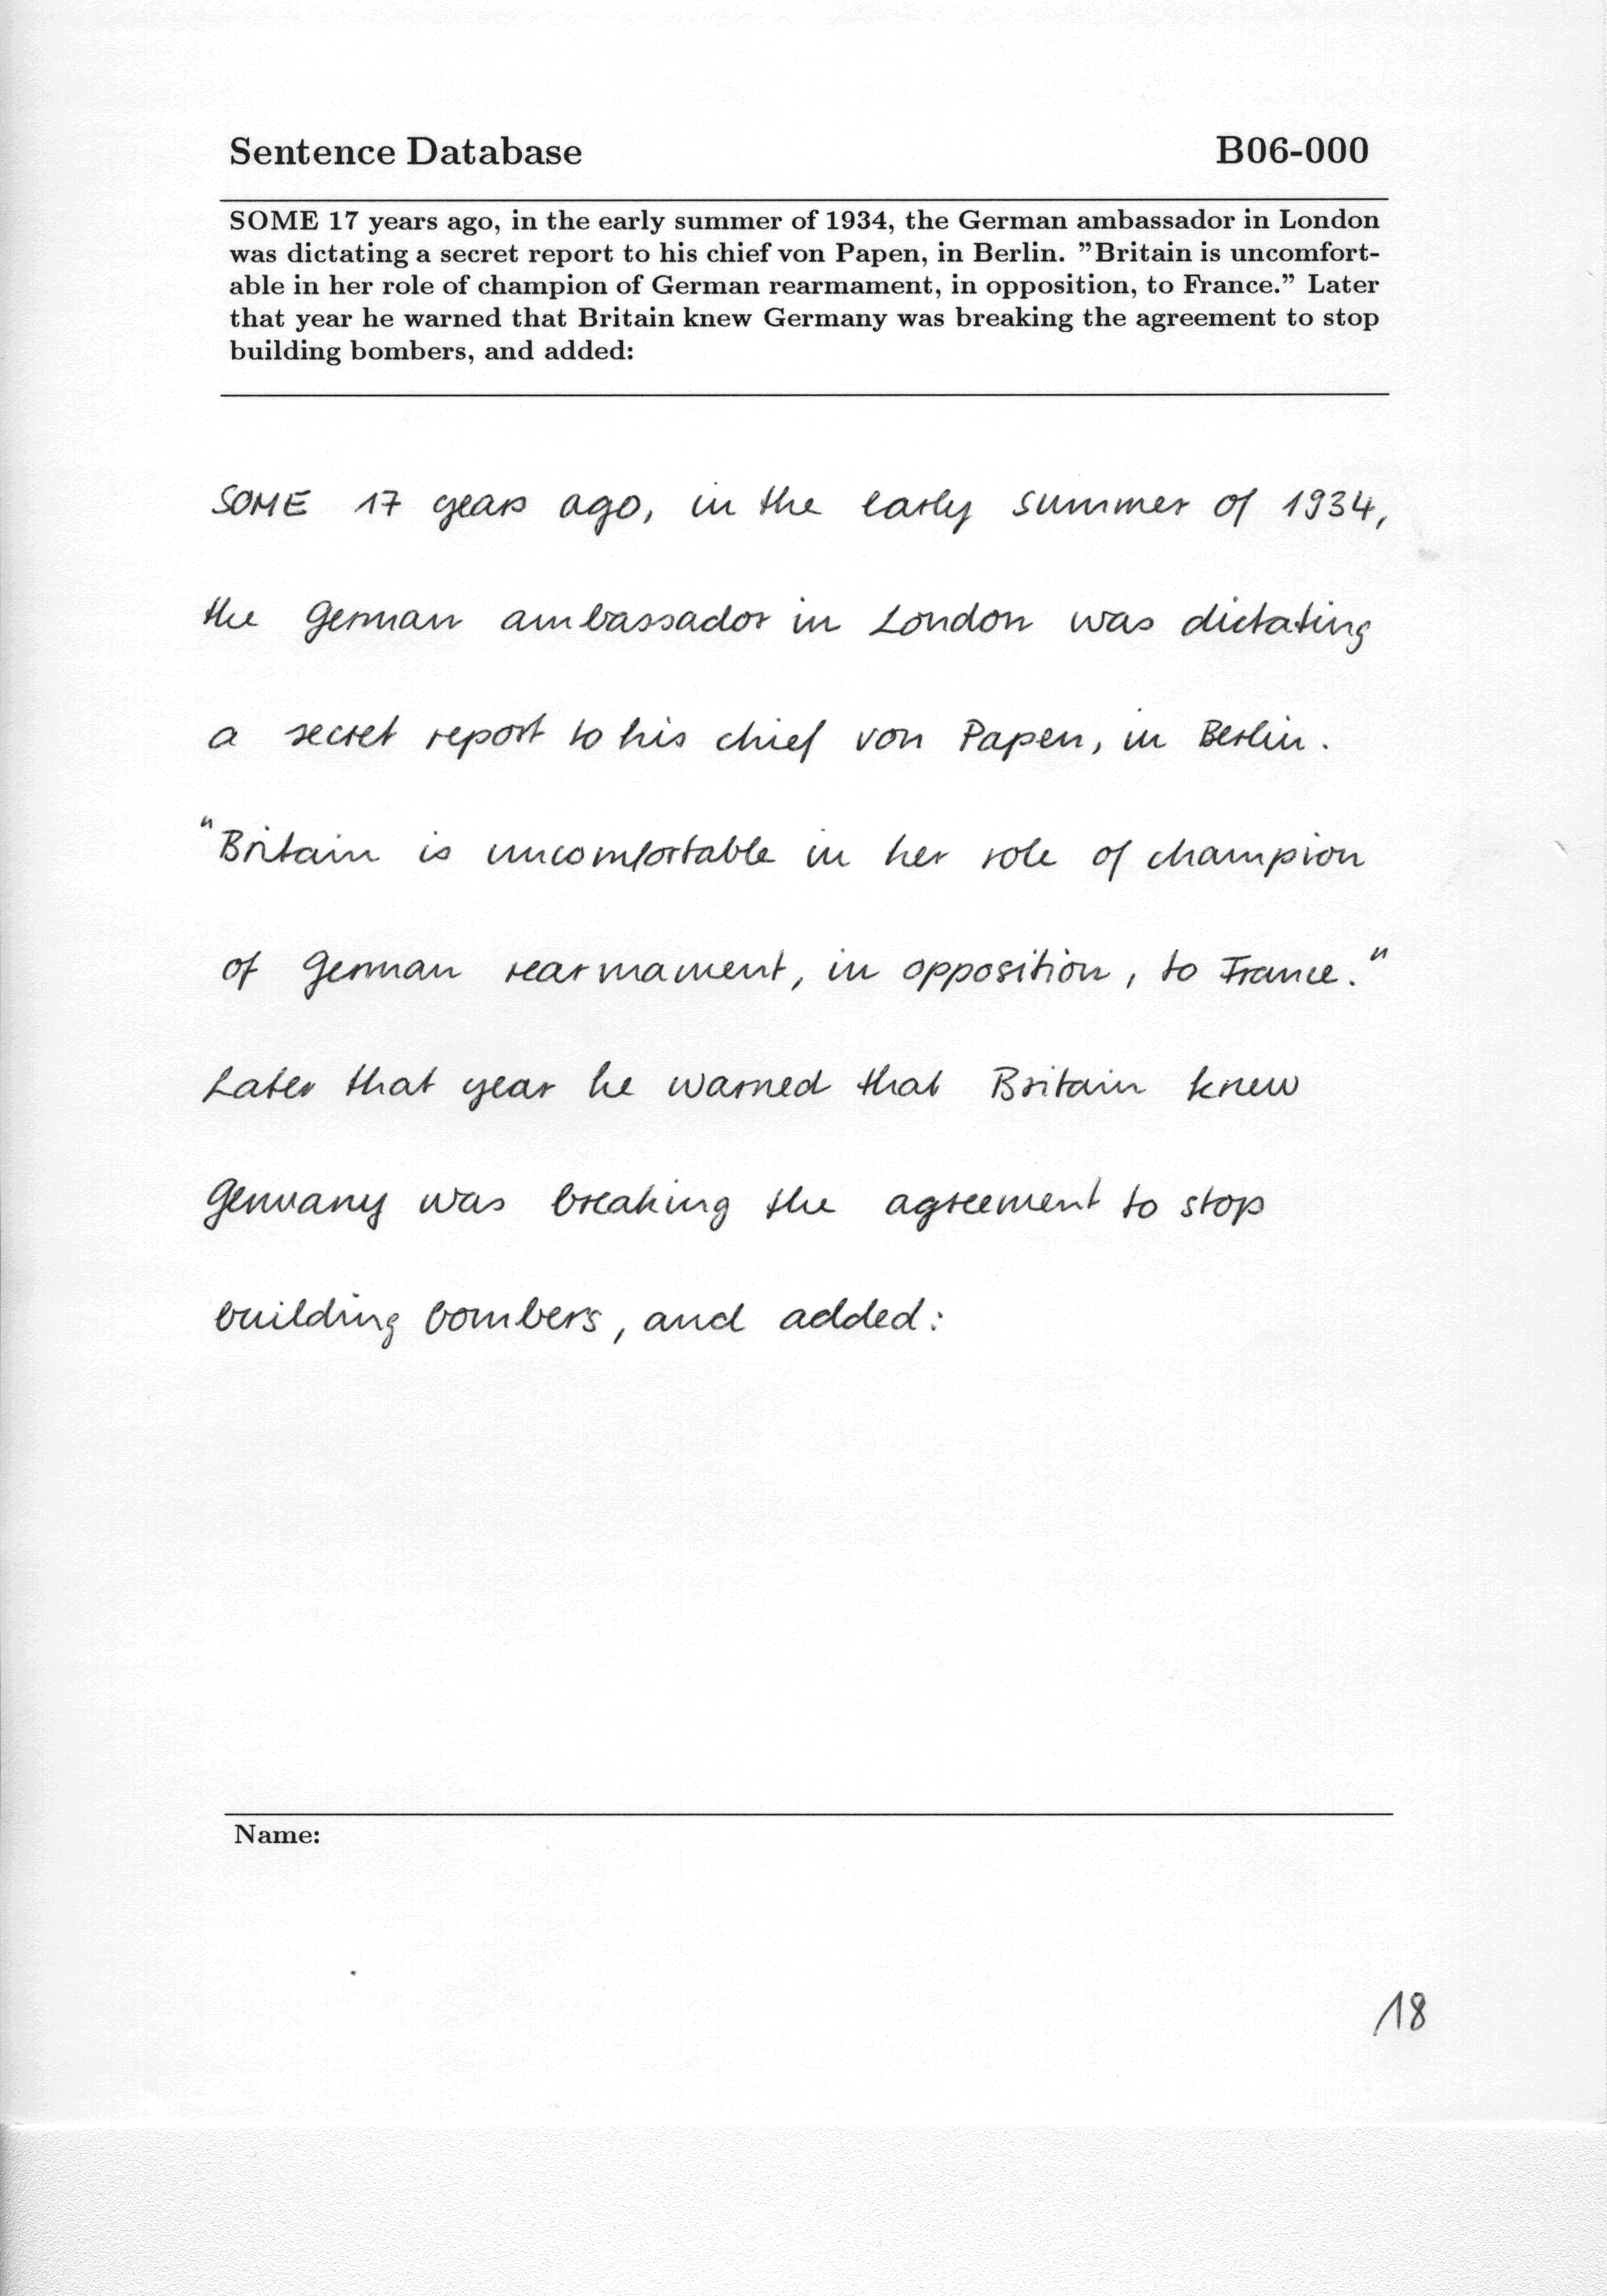 Sentence Database B06-000
SOME 17 years ago, in the early summer of 1934, the German ambassador in London
was dictating a secret report to his chief von Papen, in Berlin. "Britain is uncomfort-
able in her role of champion of German rearmament, in opposition, to France." Later
that year he warned that Britain knew Germany was breaking the agreement to stop
building bombers, and added:
SOME 17 years ago, in the early summer of 1934,
the German ambassador in London was dictating
a secret report to his chief von Papen, in Berlin.
"Britain is uncomfortable in her role of champion
of German rearmament, in opposition, to France."
Later that year he warned that Britain knew
Germany was breaking the agreement to stop
building bombers, and added:
Name:
18